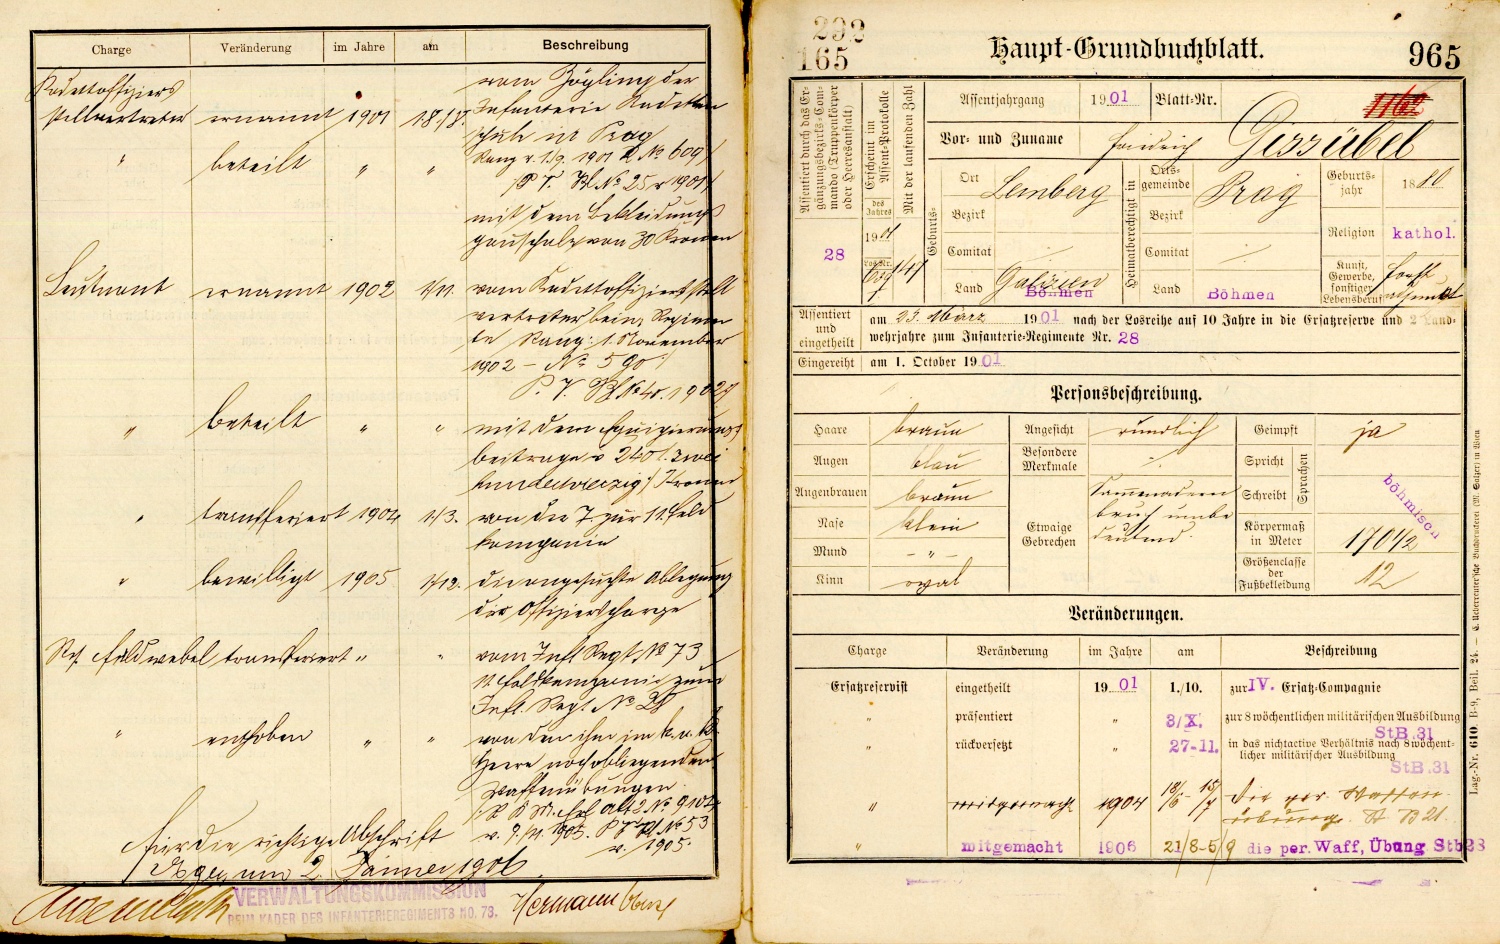 Charge Veränderung im Jahre am Beschreibung
Kadettoffiziers
stellvertreter ernannt 1901 18./8.
vom Zögling der
Infanterie Kadetten
schule in Prag
Rang v. 1./9. 1901 R. No 609
" beteilt " "
P. V. Bl. No 25 v 1901
mit dem Bekleidungs
pauschale von 30 Kronen
Leutnant ernannt 1902 1/11. vom Kadettoffiziersstell
vertreter beim Regimen
te Rang: 1. November
1902 – No 590
P. V. Bl. No 40. 1902
" beteilt " " mit dem Equipierungs
beitrage v 240 /: zwei
hundertvierzig :/ Kronen
" transferiert 1904 1/3. von der 7. zur 11. Feld
kompanie
" bewilligt 1905 1/12. die angesuchte Ablegung
der Offizierscharge
Res. Feldwebel transferiert " " vom Inft. Regt. No 73
11. Feldkompanie zum
Inft. Regt. No 28
" enthoben " " von den ihm im k. u. k.
Heere noch obliegenden
Waffenübungen.
v. 9. 11. 1905. P. V. Bl. No 53
v. 1905.
Für die richtige Abschrift
Eger, am 2. Jänner 1906
VERWALTUNGSKOMMISSION
BEIM KADER DES INFANTERIEREGIMENTS NO. 73.
Hermann
292
165
Haupt-Grundbuchblatt.
965
Assentiert durch das Ergänzungsbezirks-Commando (Truppenkörper oder Heeresanstalt)
28
Erscheint im Assent-Protokolle
des Jahres
1901
Los-Nr.
Mit der laufenden Zahl
147
Assentjahrgang 1901 Blatt-Nr. 1162
Vor- und Zuname Friedrich Giessübel
Geburts-
Ort Lemberg
Bezirk
Comitat
Land Galizien
Böhmen
Heimatberechtigt in
Ortsgemeinde Prag
Bezirk
Comitat
Land Böhmen
Geburtsjahr 1880
Religion kathol.
Kunst, Gewerbe, sonstiger Lebensberuf Forstadjunkt
Assentiert und eingetheilt am 23. März 1901 nach der Losreihe auf 10 Jahre in die Ersatzreserve und 2 Land-
wehrjahre zum Infanterie-Regimente Nr. 28
Eingereiht am 1. October 1901
Personsbeschreibung.
Haare braun Angesicht rundlich Geimpft ja
Augen blau Besondere Merkmale Spricht
Augenbrauen braun Schreibt
Sprachen böhmisch
Nase klein Etwaige Gebrechen Samenadern
bruch unbe
deutend.
Körpermaß in Meter 1·70½
Mund – " –
Kinn oval Größenclasse der Fußbekleidung 12
Veränderungen.
Charge Veränderung im Jahre am Beschreibung
Ersatzreservist eingetheilt 1901 1./10. zur IV. Ersatz-Compagnie
" präsentiert " 3/X. zur 8 wöchentlichen militärischen Ausbildung
StB.31
" rückversetzt " 27-11. in das nichtactive Verhältnis nach 8 wöchent-
licher militärischer Ausbildung
StB.31
" mitgemacht 1904 18/6 15/7 die per. Waffen-
übung.
" mitgemacht 1906 21/8-5/9 die per. Waff, Übung Stb 28
Lag.-Nr. 610. B-9, Beil. 24. — C. Ueberreuter'sche Buchdruckerei (M. Salzer) in Wien